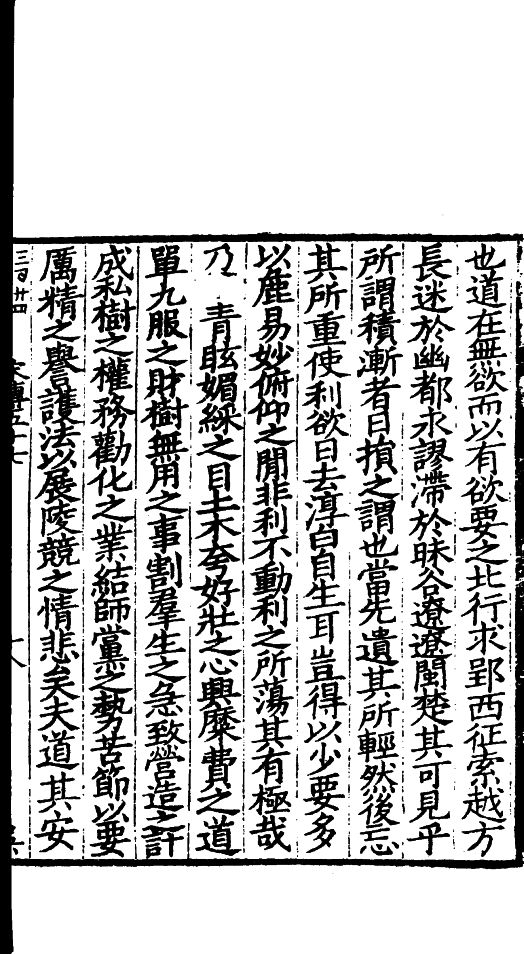 也道在無欲而以有欲要之北行求郢西征索越方
長迷於幽都永謬滯於昧谷遼遼閩楚其可見乎
所謂積漸者日損之謂也當先遺其所輕然後忘
其所重使利欲日去淳白自生耳豈得以少要多
以麁易妙俯仰之間非利不動利之所蕩其有極哉
乃 青眩媚綵之目土木夸好壯之心興糜費之道
單九服之財樹無用之事割羣生之急致營造之計
成私樹之權務勸化之業結師黨之勢苦節以要
厲精之譽護法以展陵競之情悲矣夫道其安
三百廿四 宋傳五十七 十八